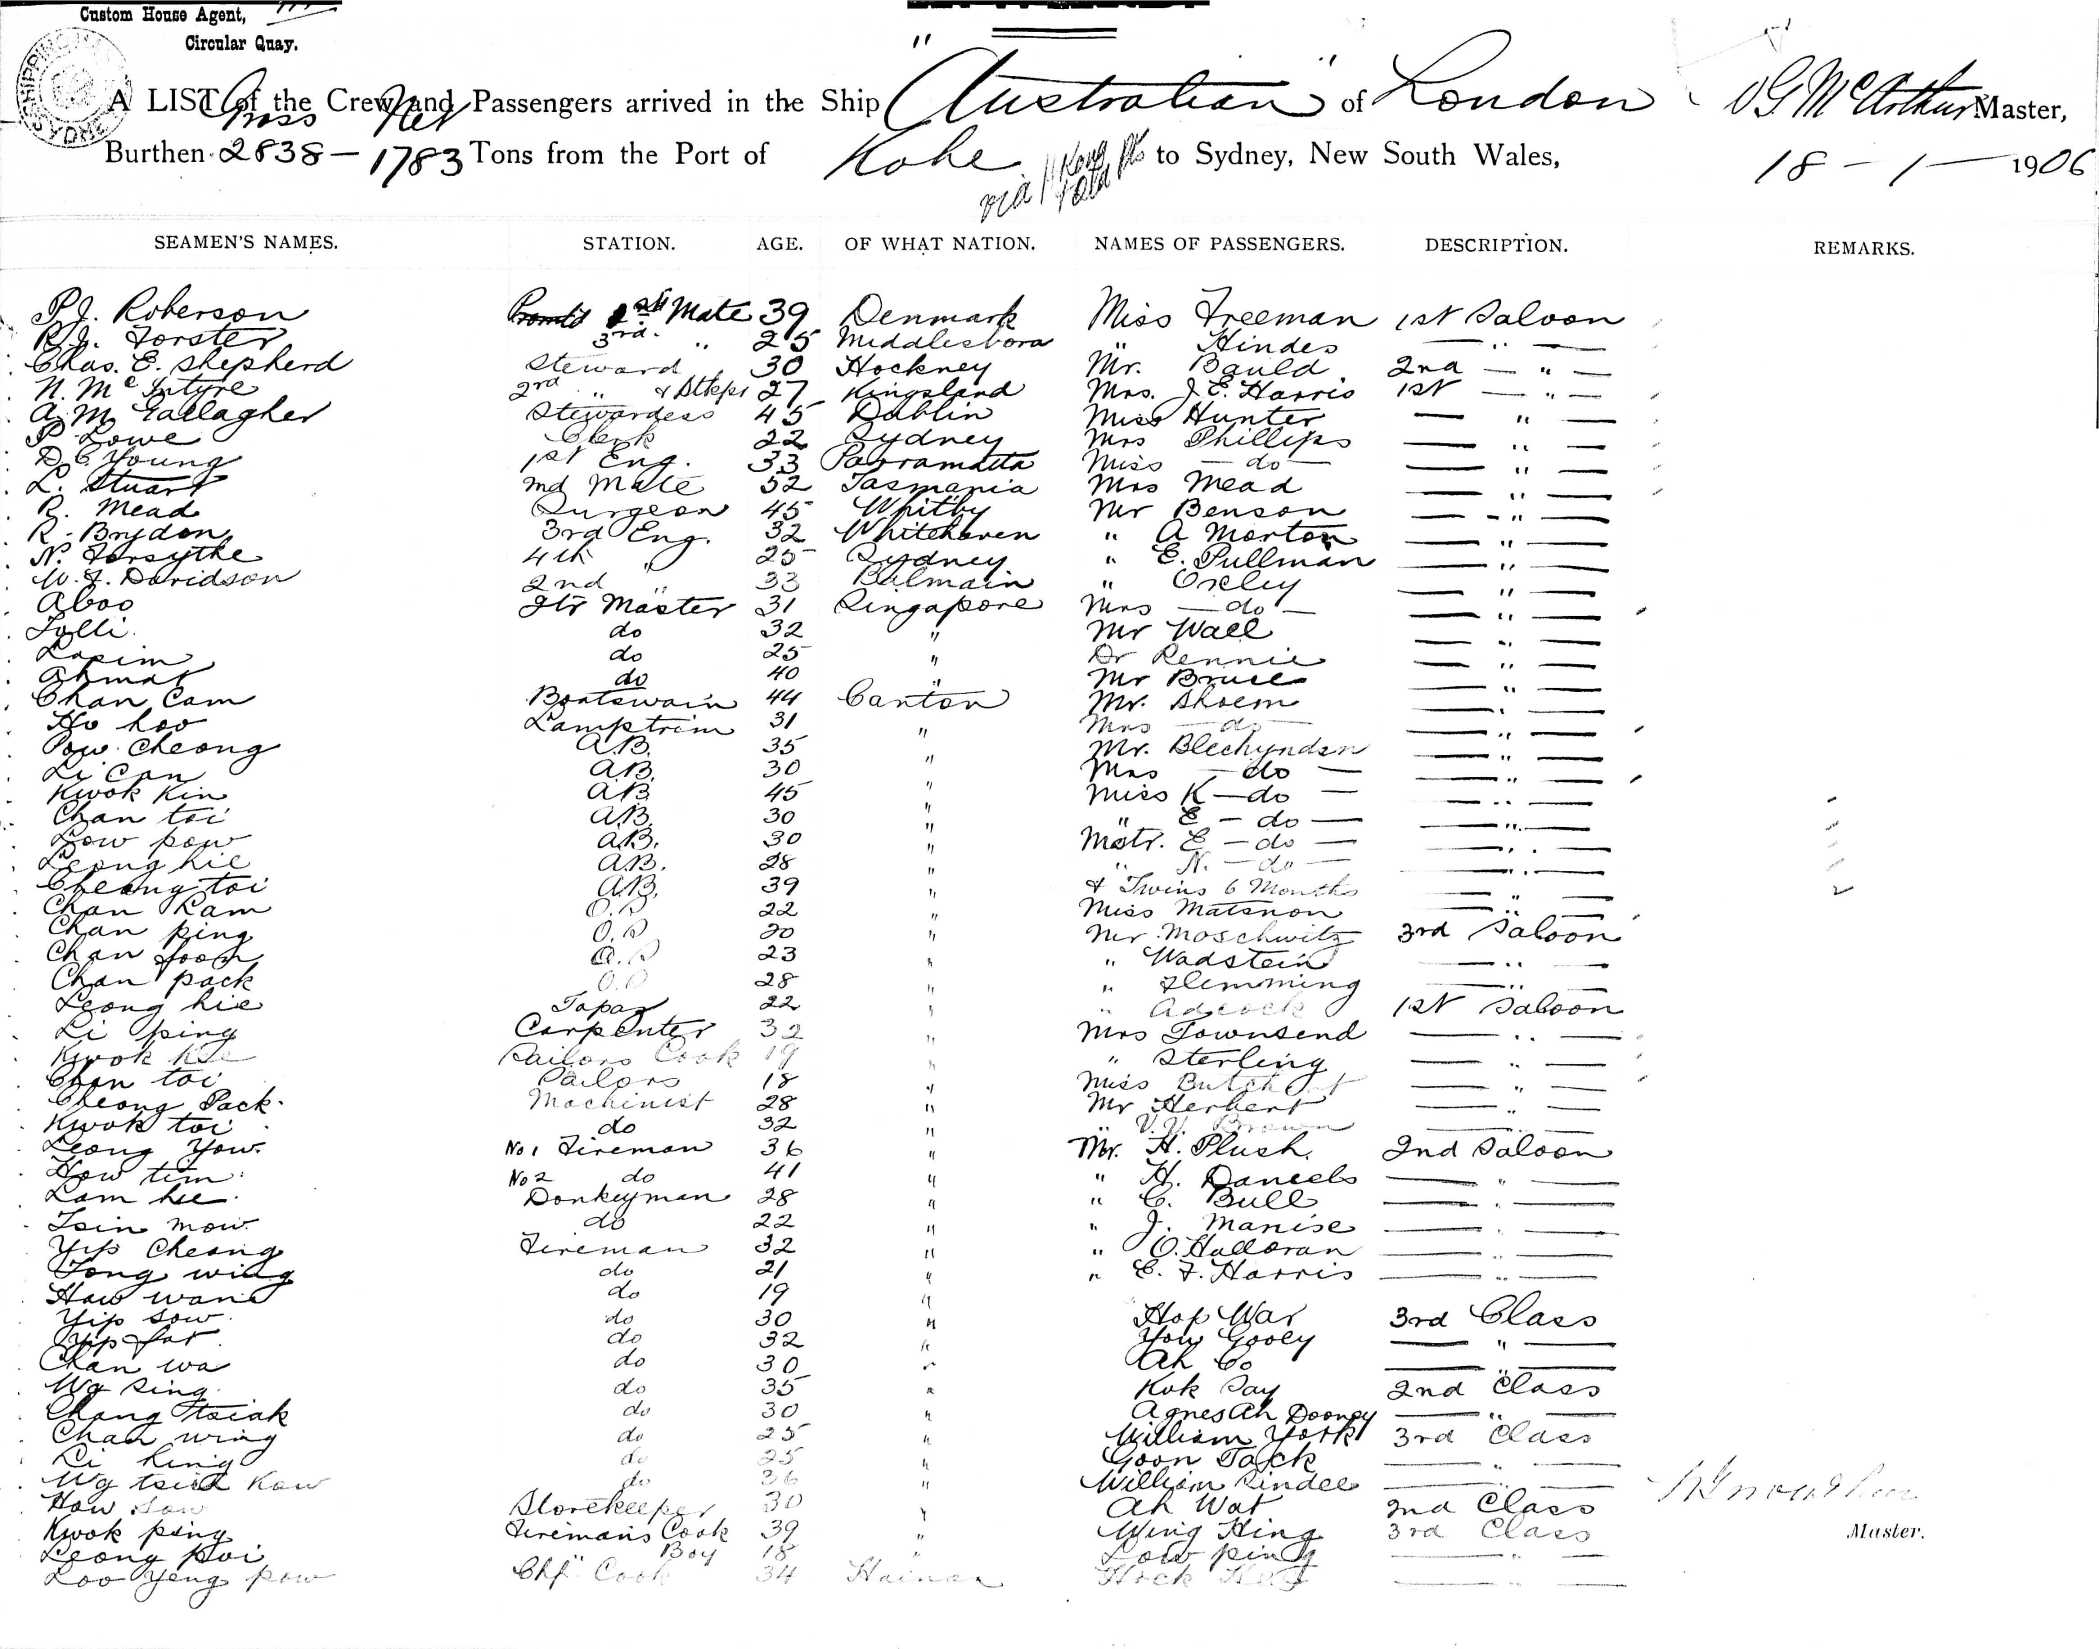 Custom House Agent,
Circular Quay.
A LIST of the Crew and Passengers arrived in the Ship "Australian" of London McArthur Master,
Gross Net
Burthen 2838 — 1783 Tons from the Port of Kobe via to Sydney, New South Wales, 18 — 1 — 1906
SEAMEN'S NAMES. STATION. AGE. OF WHAT NATION. NAMES OF PASSENGERS. DESCRIPTION. REMARKS.
P.J. Roberson Mate 39 Denmark Miss Freeman 1st Saloon
R.J. Forster 3rd " 25 Middlesboro " Hindes — " —
Chas. E. Shepherd Steward 30 Hockney Mr. Bauld 2nd — " —
N. McIntyre 2nd " & Stkpr 27 Kingsland Mrs. J.E. Harris 1st — " —
A.M. Gallagher Stewardess 45 Dublin Miss Hunter — " —
P. Lowe Clerk 22 Sydney Mrs Phillips — " —
D.C. Young 1st Eng. 33 Parramatta Miss — do — — " —
L. Stuart 2nd Mate 52 Tasmania Mrs Mead — " —
R. Mead Surgeon 45 Whitby Mr Benson — " —
R. Brydon 3rd Eng. 32 Whitehaven " A Morton — " —
N. Forsythe 4th " 25 Sydney " E. Pullman — " —
W.J. Davidson 2nd " 33 Balmain " Oxley — " —
Aboo Qtr Master 31 Singapore Mrs — do — — " —
Tulli do 32 " Mr Wall — " —
Lasim do 25 " Dr Rennie — " —
Ahmat do 40 " Mr Bruce — " —
Chan Cam Boatswain 44 Canton Mr. Shoem — " —
Ho hoo Lamptrim 31 " Mrs — do — — " —
Pow Cheong A.B. 35 " Mr. Blechynden — " —
Li Can A.B. 30 " Mrs — do — — " —
Kwok Kin A.B. 45 " Miss K — do — — " —
Chan toi A.B. 30 " " E — do — — " —
Low pow A.B. 30 " Mstr. E — do — — " —
Leong hie A.B. 28 " " N. — do — — " —
Cheong toi A.B. 39 " & Twins 6 Months — " — 2
Chan Kam O.S 22 " Miss Matsnon — " —
Chan ping O.S 20 " Mr. Moschwitz 3rd Saloon
Chan foon O.S 23 " " Wadstein — " —
Chan pack O.S 28 " " Flemming — " —
Leong hie Topaz 22 " " Adcock 1st Saloon
Li ping Carpenter 32 " Mrs Townsend — " —
Kwok Sailors Cook 19 " " Sterling — " —
Chan toi Sailors 18 " Miss — " —
Cheong Pack Machinist 28 " Mr Herbert — " —
Kwok toi do 32 " " V.V. Brown — " —
Leong You. No 1 Fireman 36 " Mr. H. Plush. 2nd Saloon
How tim No 2 do 41 " " H. Daniels — " —
Lam hee Donkeyman 28 " " C. Bull — " —
Tsin mow do 22 " " J. Manise — " —
Yip Cheong Fireman 32 " " O.Halloran — " —
Tong wing do 21 " " E. F. Harris — " —
Haw wane do 19 "
Yip sow do 30 " Hop War 3rd Class
Yip fat do 32 " You Gooey — " —
Chan wa do 30 " Ah Co — " —
Wg sing do 35 " Kok Say 2nd Class
Chang tsiak do 30 " Agnes Ah Dooney — " —
Chan wing do 25 " William York 3rd Class
Li hing do 25 " Goon Tack — " —
Wg tsick Kow do 36 " William Sindel — " —
How sow Storekeeper 30 " Ah Wat 2nd Class
Kwok ping Firemans Cook 39 " Wing Hing 3rd Class Master.
Leong poi " Boy 18 " Low ping — " —
Loo Yeng pow Chf. Cook 34 Hainan Hock — " —